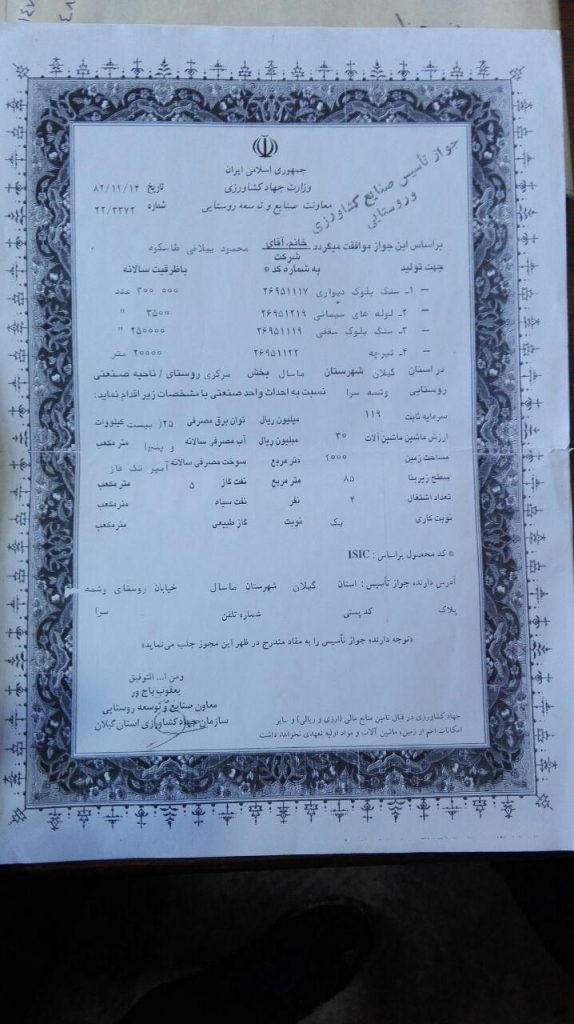 جمهوری اسلامی ایران
وزارت جهاد کشاورزی
معاونت صنایع و توسعه روستایی
جواز تأسیس صنایع کشاورزی
وروستایی
تاریخ ۸۲/۱۱/۱۴
شماره ۲۲/۳۳۷۲
براساس این جواز موافقت میگردد خانم، آقای محمود ییلاقی طاسکوه
شرکت
جهت تولید به شماره کد * باظرفیت سالانه
– ۱ـ سنگ بلوک دیواری ۲۶۹۵۱۱۱۷ ۳۰۰ ۰۰۰ عدد
– ۲ـ لوله های سیمانی ۲۶۹۵۱۲۱۹ ۳۵۰۰ "
– ۳ـ سنگ بلوک سقفی ۲۶۹۵۱۱۱۹ ۲۵۰۰۰۰ "
– ۴ـ تیرچه ۲۶۹۵۱۱۲۲ ۲۰۰۰۰ متر
در استان گیلان شهرستان ماسال بخش مرکزی روستای / ناحیه صنعتی
روستایی وشمه سرا نسبت به احداث واحد صنعتی با مشخصات زیر اقدام نماید:
سرمایه ثابت ۱۱۹ میلیون ریال توان برق مصرفی ۲۵/ بیست کیلووات
ارزش ماشین ماشین آلات ۳۰ میلیون ریال آب مصرفی سالانه و پنج متر مکعب
مساحت زمین ۲۰۰۰ متر مربع سوخت مصرفی سالانه آمپر تک فاز
سطح زیربنا ۸۵ متر مربع نفت گاز ۵ متر مکعب
تعداد اشتغال ۴ نفر نفت سیاه مترمکعب
نوبت کاری یک نوبت گاز طبیعی متر مکعب
* کد محصول براساس : ISIC
آدرس دارنده جواز تأسیس : استان گیلان شهرستان ماسال خیابان روستای وشمه
سرا
پلاک کد پستی شماره تلفن
«توجه دارنده جواز تأسیس را به مفاد مندرج در ظهر این مجوز جلب می‌نماید»
ومن ا... التوفیق
یعقوب باج ور
معاون صنایع و توسعه روستایی
سازمان جهاد کشاورزی استان گیلان
جهاد کشاورزی در قبال تامین منابع مالی (ارزی و ریالی) و سایر
امکانات اعم از زمین، ماشین آلات و مواد اولیه تعهدی نخواهد داشت